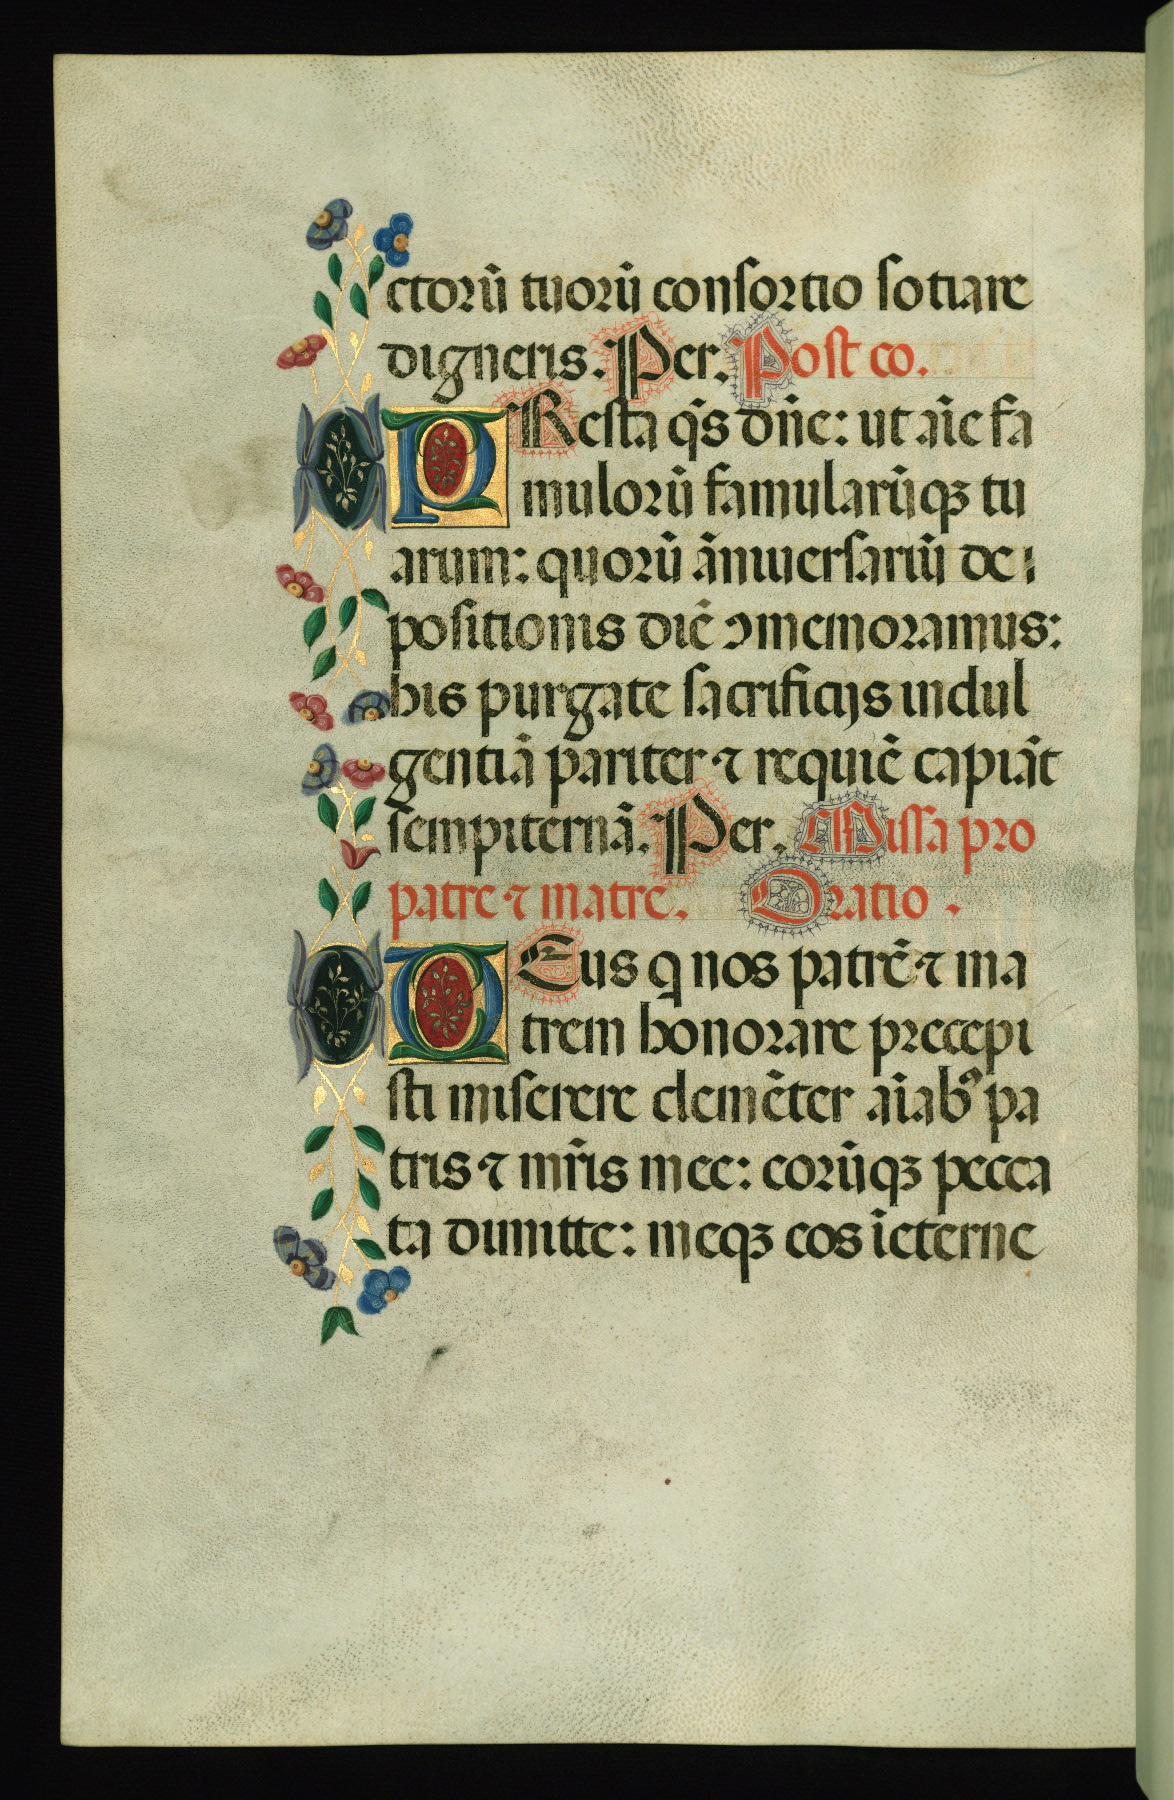 ctorū tuorū consortio sotiare
digneris. Per. Post co.
PResta q̄s dn̄e: ut aīe fa
mulorū famularūqꝫ tu
arum: quorū ānniuersariū de
positionis diē ↄmemoramus:
his purgate sacrificijs indul
gentiā pariter ⁊ requiē capiāt
sempiternā. Per. Missa pro
patre ⁊ matre. Oratio.
DEus q nos patrē ⁊ ma
trem honorare precepi
sti miserere clemēter aīabꝰ pa
tris ⁊ mr̄is mee: eorūqꝫ pecca
ta dimitte: meqꝫ eos īeterne